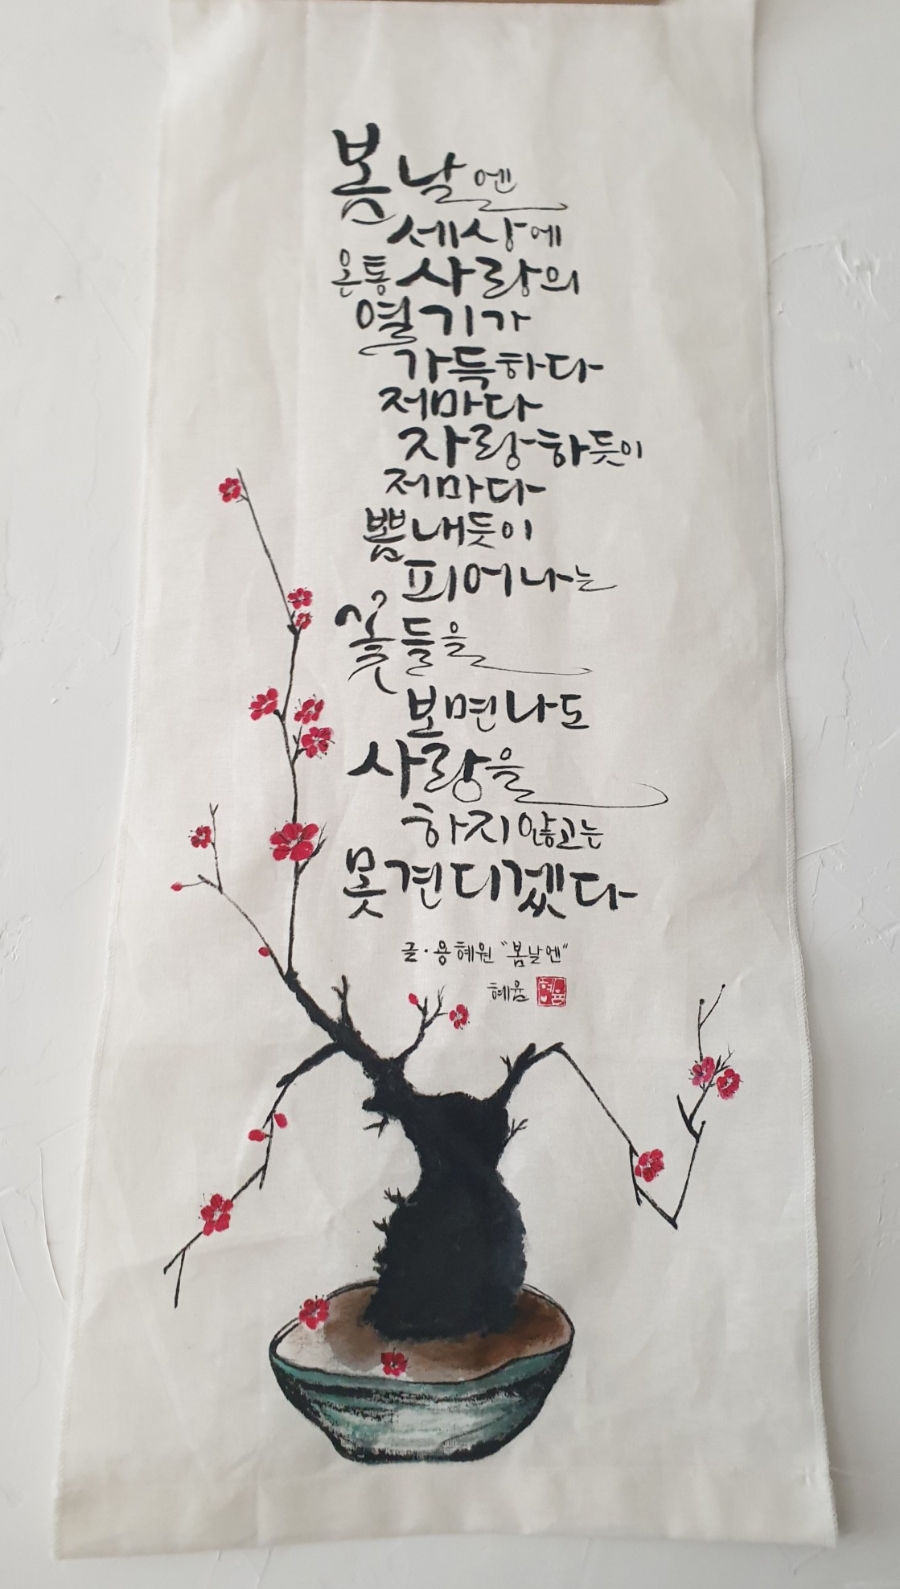 봄날엔
세상에
온통 사랑의
열기가
가득하다
저마다
자랑하듯이
저마다
뽐내듯이
피어나는
꽃들을
보면 나도
사랑을
하지 않고는
못견디겠다
글·용혜원 "봄날엔"
혜윰 혜윰